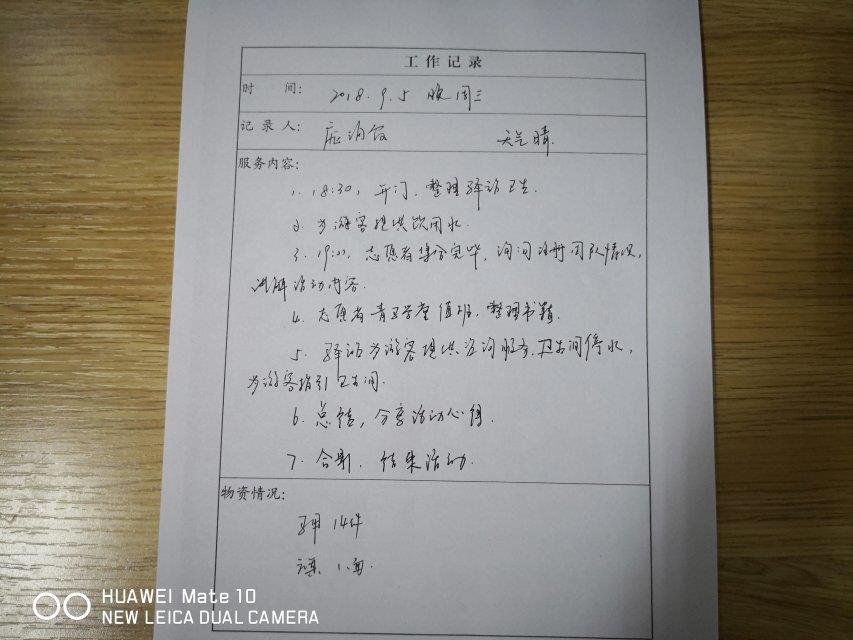 工作记录
时 间: 2018.9.5 晚 周三
记录人: 天气 晴.
服务内容:
1. 18:30, 开门, 整理驿站卫生.
2. 为游客提供饮用水.
3. 19:00, 志愿者集合完毕, 询问注册团队情况,
讲解活动内容.
4. 志愿者青卫学堂值班, 整理书籍.
5. 驿站为游客提供咨询服务, 卫生间停水,
为游客指引卫生间.
6. 总结, 分享活动心得.
7. 合影. 结束活动.
物资情况:
14件
1面.
HUAWEI Mate 10
NEW LEICA DUAL CAMERA